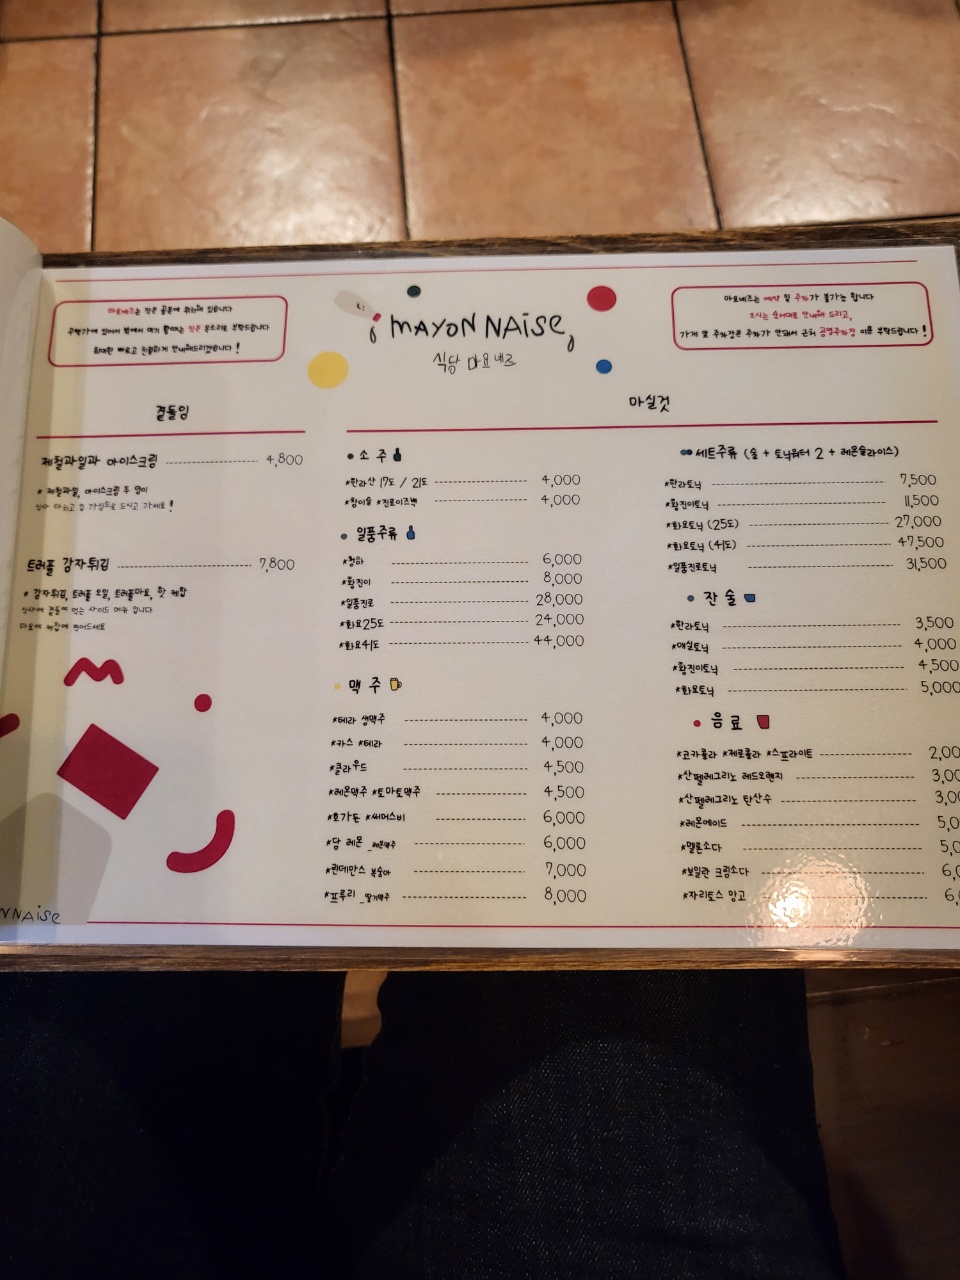 마요네즈는 작은 골목에 위치해 있습니다
주택가에 있어서 밤에서 대기 할때는 작은 목소리로 부탁드립니다
최대한 빠르고 친절하게 안내해드리겠습니다!
MAYONNAISE
식당 마요네즈
마요네즈는 예약 및 주차가 불가능 합니다
오시는 순서대로 안내해 드리고,
가게 앞 주차장은 주차가 안돼서 근처 공영주차장 이용 부탁드립니다!
곁들임
제철과일과 아이스크림 4,800
* 제철과일, 아이스크림 두 덩이
식사 마치고 입 가심으로 드시고 가세요!
트러플 감자튀김 7,800
* 감자튀김, 트러플 오일, 트러플마요, 핫 케찹
식사에 곁들여 먹는 사이드 메뉴 입니다
마요에 케찹에 찍어드세요
NNAISE
마실것
소 주
*한라산 17도 / 21도 4,000
*참이슬 *진로이즈백 4,000
일품주류
*청하 6,000
*황진이 8,000
*일품진로 28,000
*화요25도 24,000
*화요41도 44,000
맥 주
*테라 생맥주 4,000
*카스 *테라 4,000
*클라우드 4,500
*레몬맥주 *토마토맥주 4,500
*호가든 *써머스비 6,000
*담 레몬_레몬맥주 6,000
*린데만스 복숭아 7,000
*프루리_딸기맥주 8,000
세트주류 (술 + 토닉워터 2 + 레몬슬라이스)
*한라토닉 7,500
*황진이토닉 11,500
*화요토닉 (25도) 27,000
*화요토닉 (41도) 47,500
*일품진로토닉 31,500
잔 술
*한라토닉 3,500
*매실토닉 4,000
*황진이토닉 4,500
*화요토닉 5,000
음 료
*코카콜라 *제로콜라 *스프라이트 2,00
*산펠레그리노 레드오렌지 3,00
*산펠레그리노 탄산수 3,0
*레몬에이드 5,0
*멜론소다 5,0
*보일란 크림소다 6,
*자리토스 망고 6,